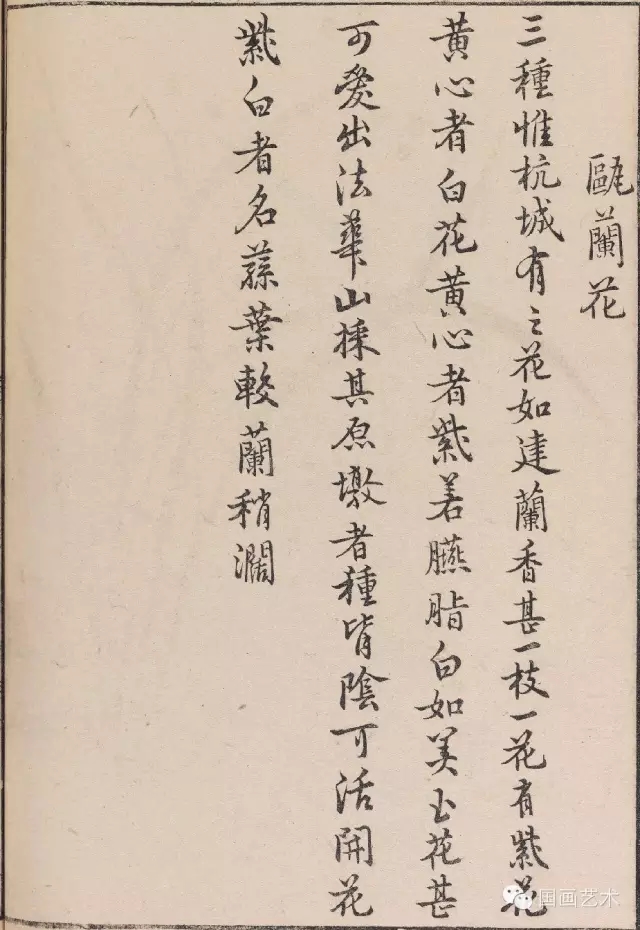 甌蘭花
三種惟杭城有之花如建蘭香甚一枝一花有紫花
黃心者白花黃心者紫若臙脂白如美玉花甚
可愛出法華山採其原墩者種背陰可活開花
紫白者名蓀葉較蘭稍濶
国画艺术